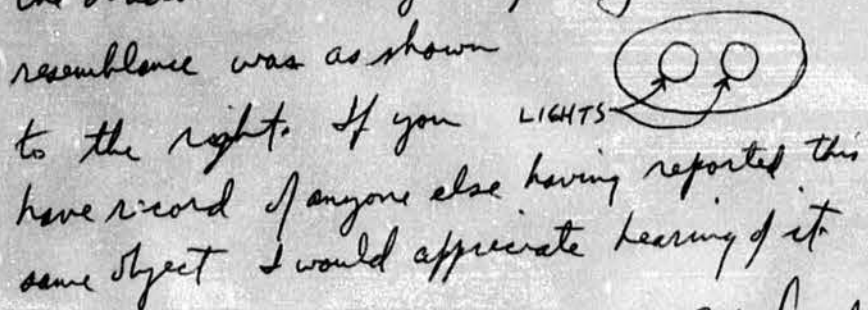 resemblance was as shown
to the right. If you LIGHTS
have record of anyone else having reported this
same object I would appreciate hearing of it.